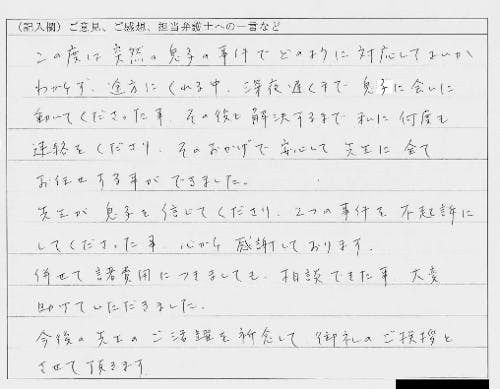 (記入欄)ご意見、ご感想、担当弁護士への一言など
この度は突然の息子の事件でどのように対応してよいか
わからず、途方にくれる中、深夜遅くまで息子に会いに
動いてくださった事、その後も解決するまで私に何度も
連絡をくださり、そのおかげで安心して先生に全て
お任せする事ができました。
先生が息子を信じてくださり、2つの事件を不起訴に
してくださった事、心から感謝しております。
併せて諸費用につきましても、相談できた事、大変
助けていただきました。
今後の先生のご活躍を祈念して御礼のご挨拶と
させて頂きます